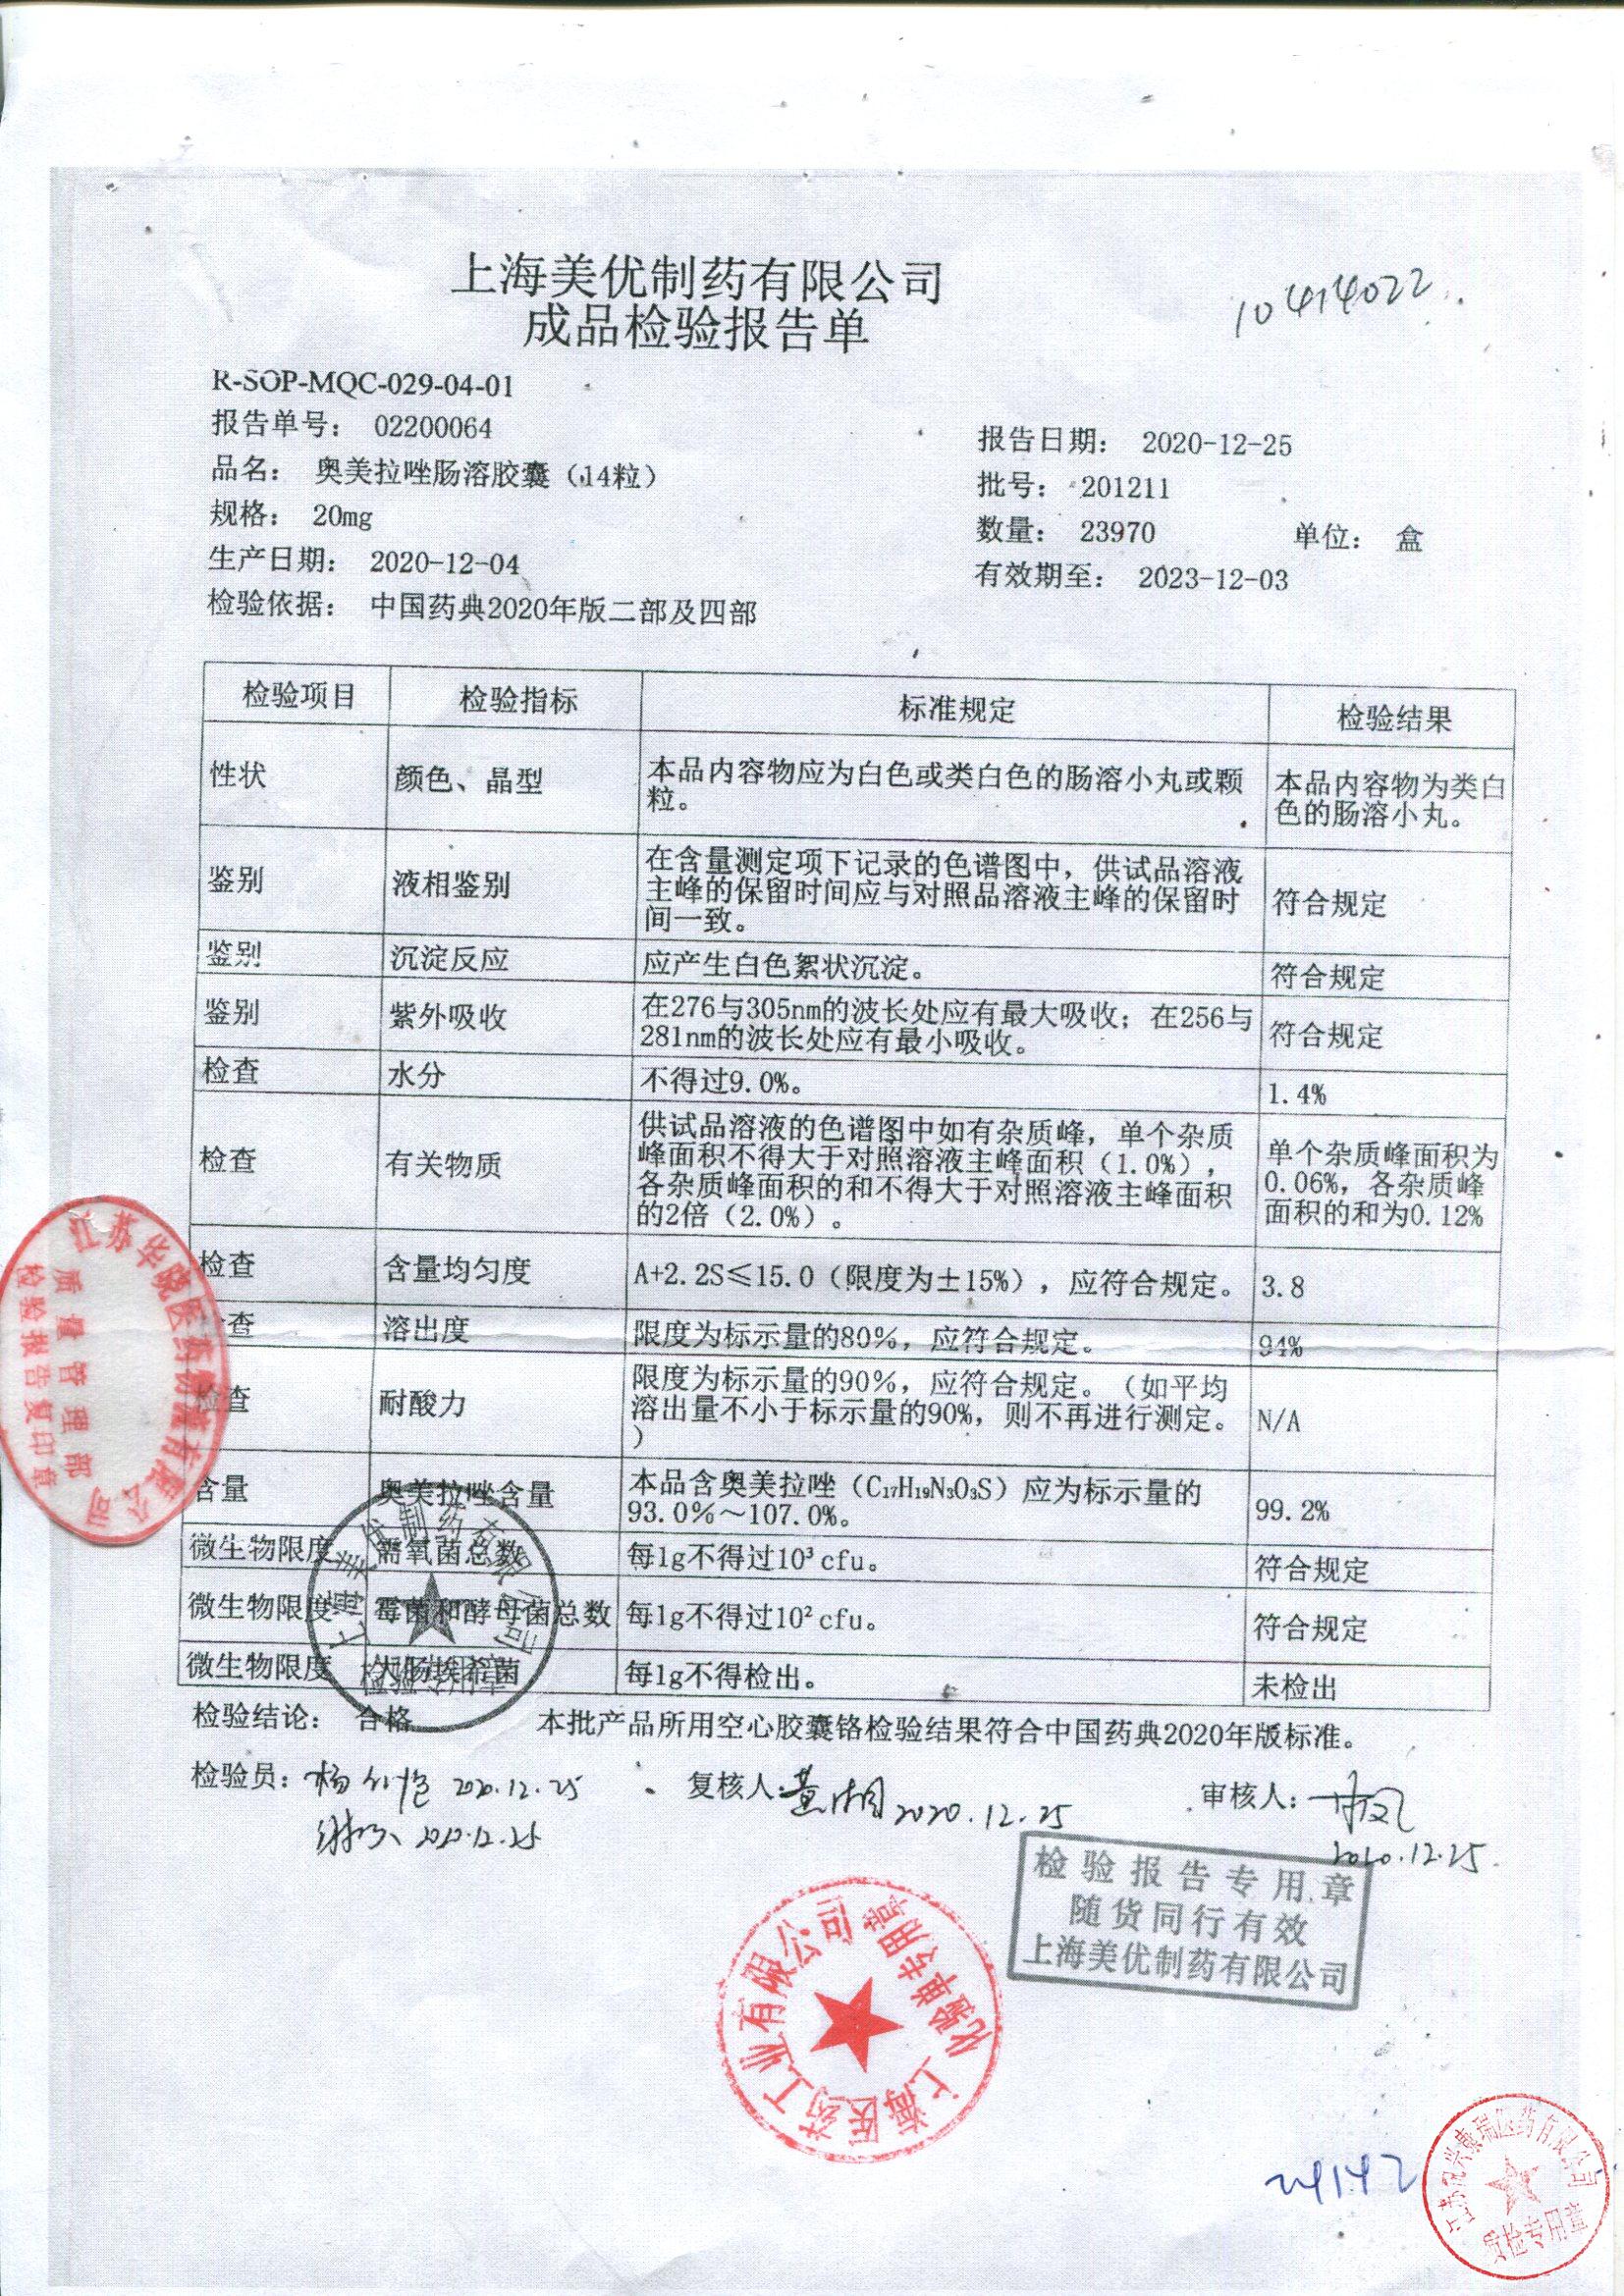 上海美优制药有限公司
成品检验报告单
10414022
R-SOP-MQC-029-04-01
报告单号： 02200064
报告日期： 2020-12-25
品名： 奥美拉唑肠溶胶囊（14粒）
批号： 201211
规格： 20mg
数量： 23970 单位： 盒
生产日期： 2020-12-04
有效期至： 2023-12-03
检验依据： 中国药典2020年版二部及四部
检验项目 检验指标 标准规定 检验结果
性状 颜色、晶型 本品内容物应为白色或类白色的肠溶小丸或颗 本品内容物为类白
粒。 色的肠溶小丸。
鉴别 液相鉴别 在含量测定项下记录的色谱图中，供试品溶液 符合规定
主峰的保留时间应与对照品溶液主峰的保留时
间一致。
鉴别 沉淀反应 应产生白色絮状沉淀。 符合规定
鉴别 紫外吸收 在276与305nm的波长处应有最大吸收；在256与 符合规定
281nm的波长处应有最小吸收。
检查 水分 不得过9.0%。 1.4%
检查 有关物质 供试品溶液的色谱图中如有杂质峰，单个杂质 单个杂质峰面积为
峰面积不得大于对照溶液主峰面积（1.0%）， 0.06%，各杂质峰
各杂质峰面积的和不得大于对照溶液主峰面积 面积的和为0.12%
的2倍（2.0%）。
检查 含量均匀度 A+2.2S≤15.0（限度为±15%），应符合规定。 3.8
查 溶出度 限度为标示量的80%，应符合规定。 94%
检查 耐酸力 限度为标示量的90%，应符合规定。（如平均 N/A
溶出量不小于标示量的90%，则不再进行测定。
）
含量 奥美拉唑含量 本品含奥美拉唑（C₁₇H₁₉N₃O₃S）应为标示量的 99.2%
93.0%～107.0%。
微生物限度 需氧菌总数 每1g不得过10³cfu。 符合规定
微生物限度 霉菌和酵母菌总数 每1g不得过10²cfu。 符合规定
微生物限度 大肠埃希菌 每1g不得检出。 未检出
检验结论： 合格 本批产品所用空心胶囊铬检验结果符合中国药典2020年版标准。
检验员： 2020.12.25 复核人： 黄湘 2020.12.25 审核人：
2020.12.25 2020.12.25
上海美优制药有限公司
检验专用章
检验报告专用章
随货同行有效
上海美优制药有限公司
上海医药工业有限公司
化验单专用章
江苏华晓医药物流有限公司
质量管理部
检验报告复印章
医药有限公司
质检专用章